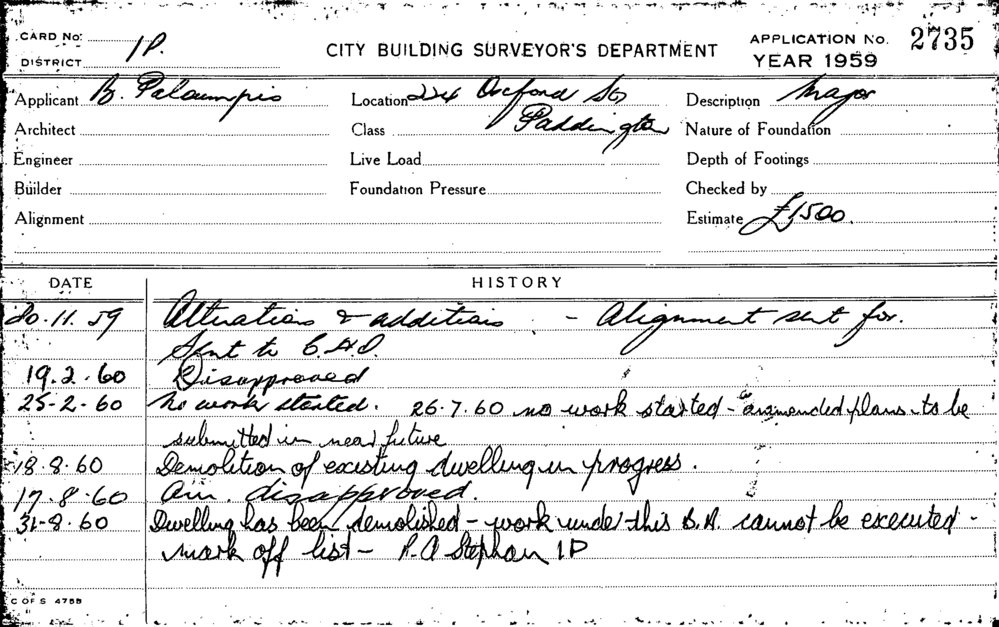 CARD No: 1P.
CITY BUILDING SURVEYOR'S DEPARTMENT
APPLICATION No. 2735
DISTRICT
YEAR 1959
Applicant B. Location 224 Oxford St Description Major
Architect Class Paddington Nature of Foundation
Engineer Live Load Depth of Footings
Builder Foundation Pressure Checked by
Alignment Estimate £1500.
DATE HISTORY
20.11.59 Alterations & additions - Alignment sent for.
Sent to C.H.O.
19.2.60 Disapproved
25-2-60 No work started. 26.7.60 no work started - ammended plans to be
submitted in near future
18.8.60 Demolition of existing dwelling in progress.
17.8.60 Am. disapproved.
31-8.60 Dwelling has been demolished - work under this B.A. cannot be executed -
mark off list - P.A Stephan 1P
C OF S 475B